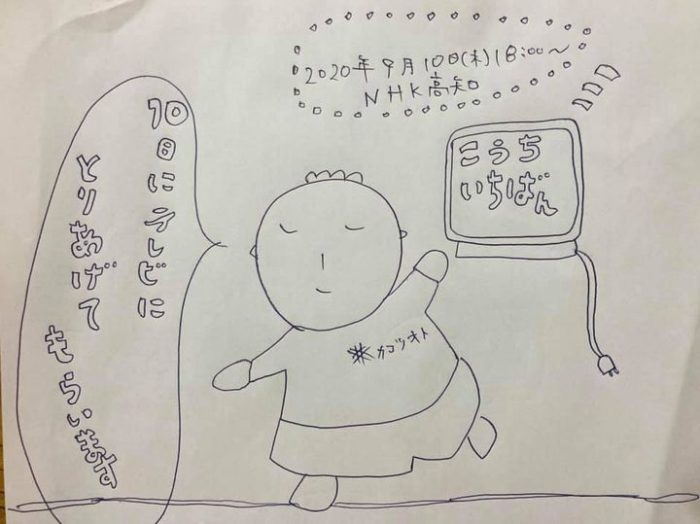 2020年9月10日(木)18:00〜
NHK高知
こうち
いちばん
10日にテレビに
とりあげて
もらいます